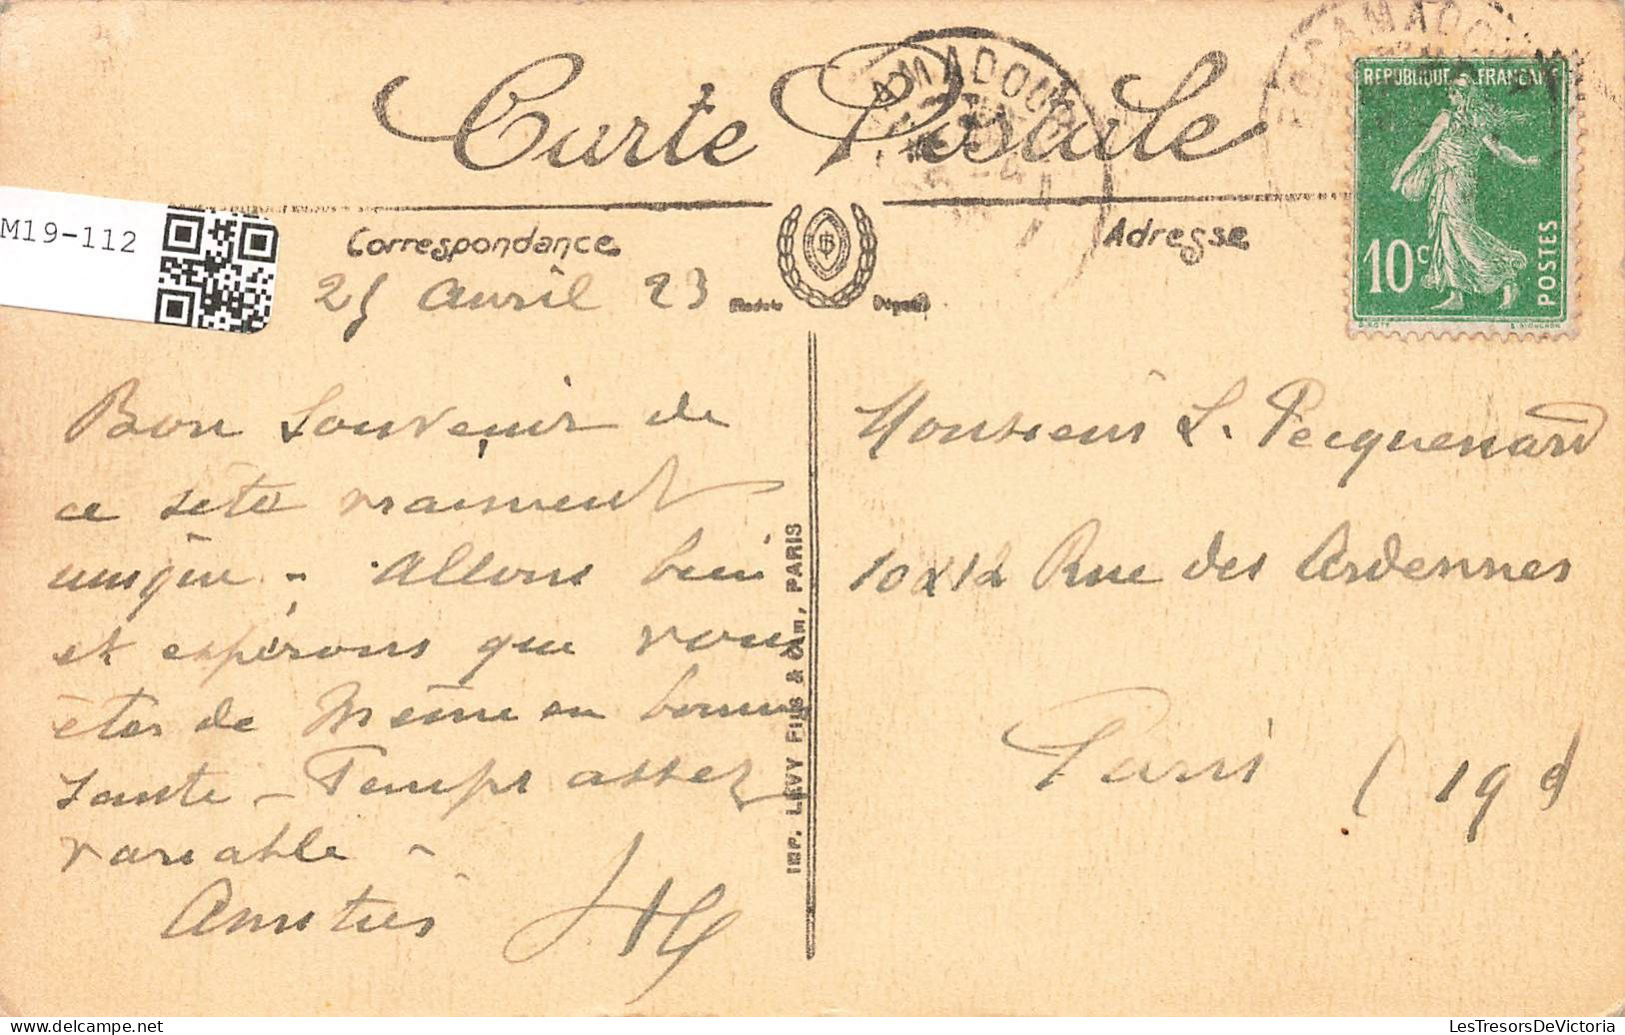 Carte Postale
ROCAMADOUR
RÉPUBLIQUE FRANÇAISE
10c
POSTES
M19-112
Correspondance
Adresse
Modèle Déposé
25 avril 23
Bon souvenir de
ce site vraiment
unique - Allons bien
et espérons que vous
êtes de même en bonne
santé - Temps assez
variable -
Amitiés
Monsieur L. Pecquenard
10 & 12 Rue des Ardennes
Paris (19e)
IMP. LÉVY FILS & CIE, PARIS
LesTresorsDeVictoria